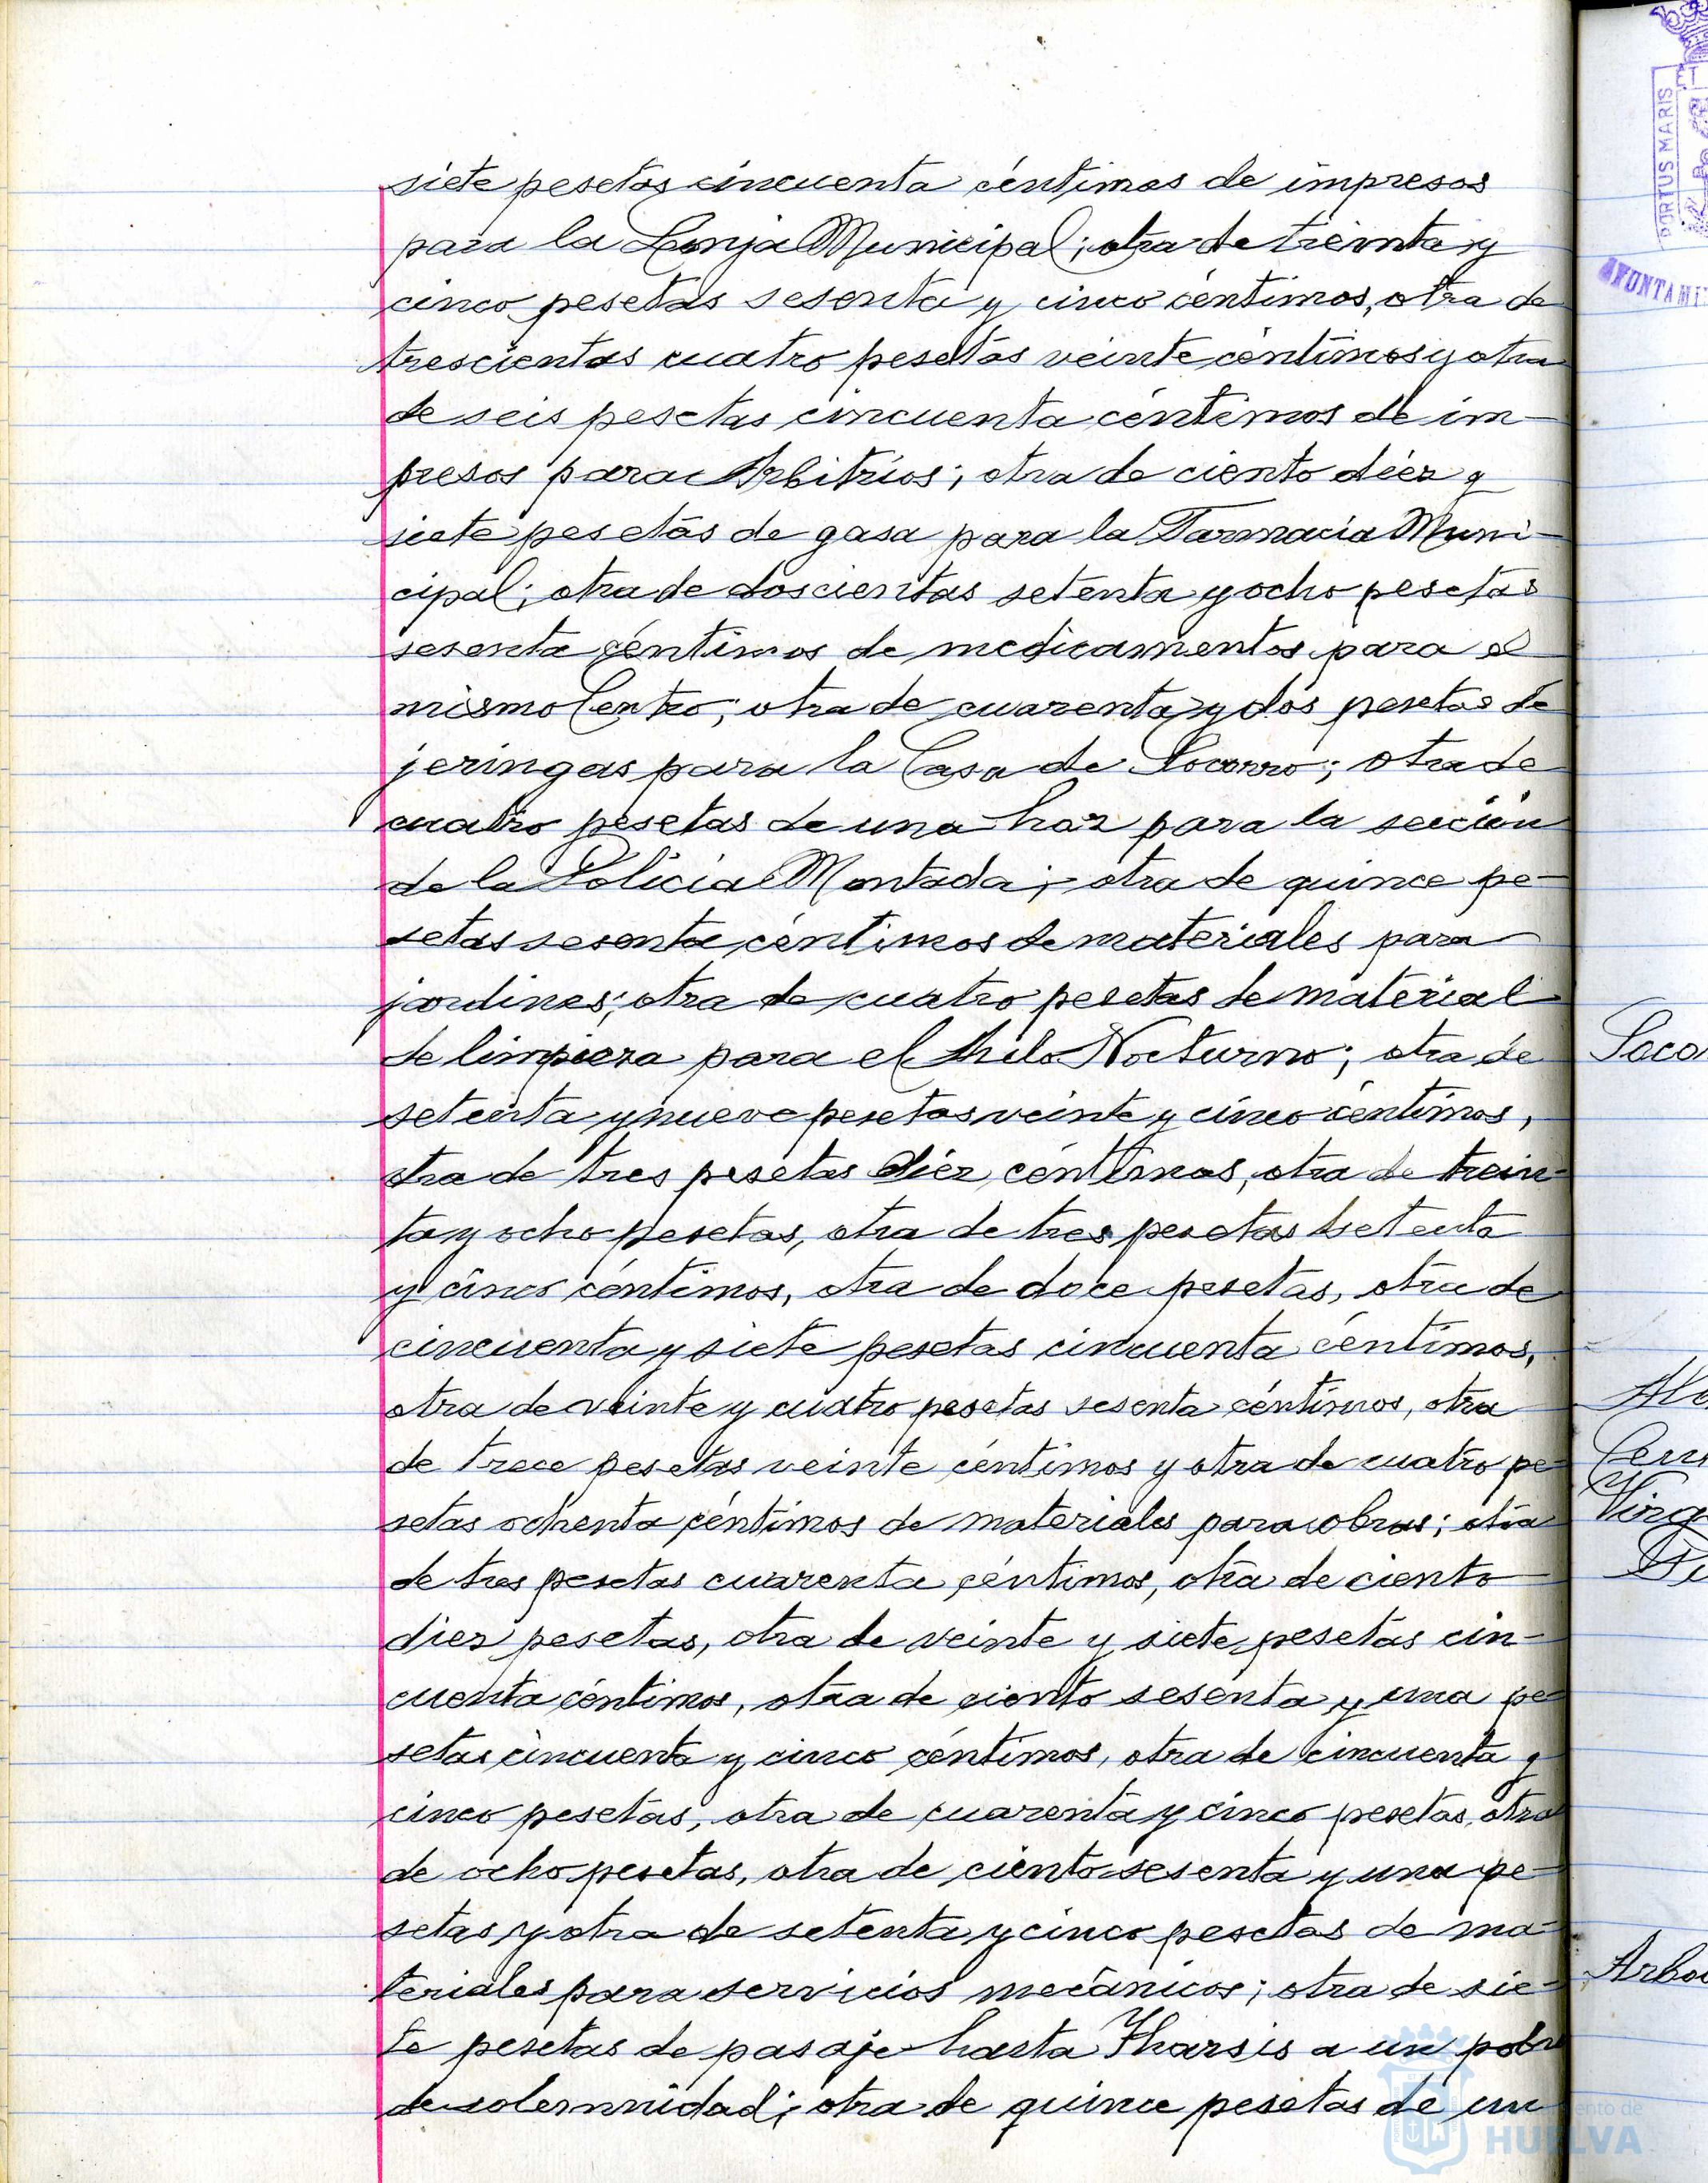 siete pesetas cincuenta céntimos de impresos
para la Lonja Municipal; otra de treinta y
cinco pesetas sesenta y cinco céntimos, otra de
trescientas cuatro pesetas veinte céntimos y otra
de seis pesetas cincuenta céntimos de im-
presos para Arbitrios; otra de ciento diez y
siete pesetas de gasa para la Farmacia Muni-
cipal; otra de doscientas setenta y ocho pesetas
sesenta céntimos de medicamentos para el
mismo Centro; otra de cuarenta y dos pesetas de
jeringas para la Casa de Socorro; otra de
cuatro pesetas de una hoz para la sección
de la Policía Montada; otra de quince pe-
setas sesenta céntimos de materiales para
jardines; otra de cuatro pesetas de material
de limpieza para el Asilo Nocturno; otra de
setenta y nueve pesetas veinte y cinco céntimos,
otra de tres pesetas diez céntimos, otra de trein-
ta y ocho pesetas, otra de tres pesetas setenta
y cinco céntimos, otra de doce pesetas, otra de
cincuenta y siete pesetas cincuenta céntimos,
otra de veinte y cuatro pesetas sesenta céntimos, otra
de trece pesetas veinte céntimos y otra de cuatro pe-
setas ochenta céntimos de materiales para obras; otra
de tres pesetas cuarenta céntimos, otra de ciento
diez pesetas, otra de veinte y siete pesetas cin-
cuenta céntimos, otra de ciento sesenta y una pe-
setas cincuenta y cinco céntimos, otra de cincuenta y
cinco pesetas, otra de cuarenta y cinco pesetas, otra
de ocho pesetas, otra de ciento sesenta y una pe-
setas y otra de setenta y cinco pesetas de ma-
teriales para servicios mecánicos; otra de sie-
te pesetas de pasaje hasta Tharsis a un pobre
de solemnidad; otra de quince pesetas de un
PORTUS MARIS ET
AYUNTAMI
Soco
Virg
Arbo
ento de
HUELVA